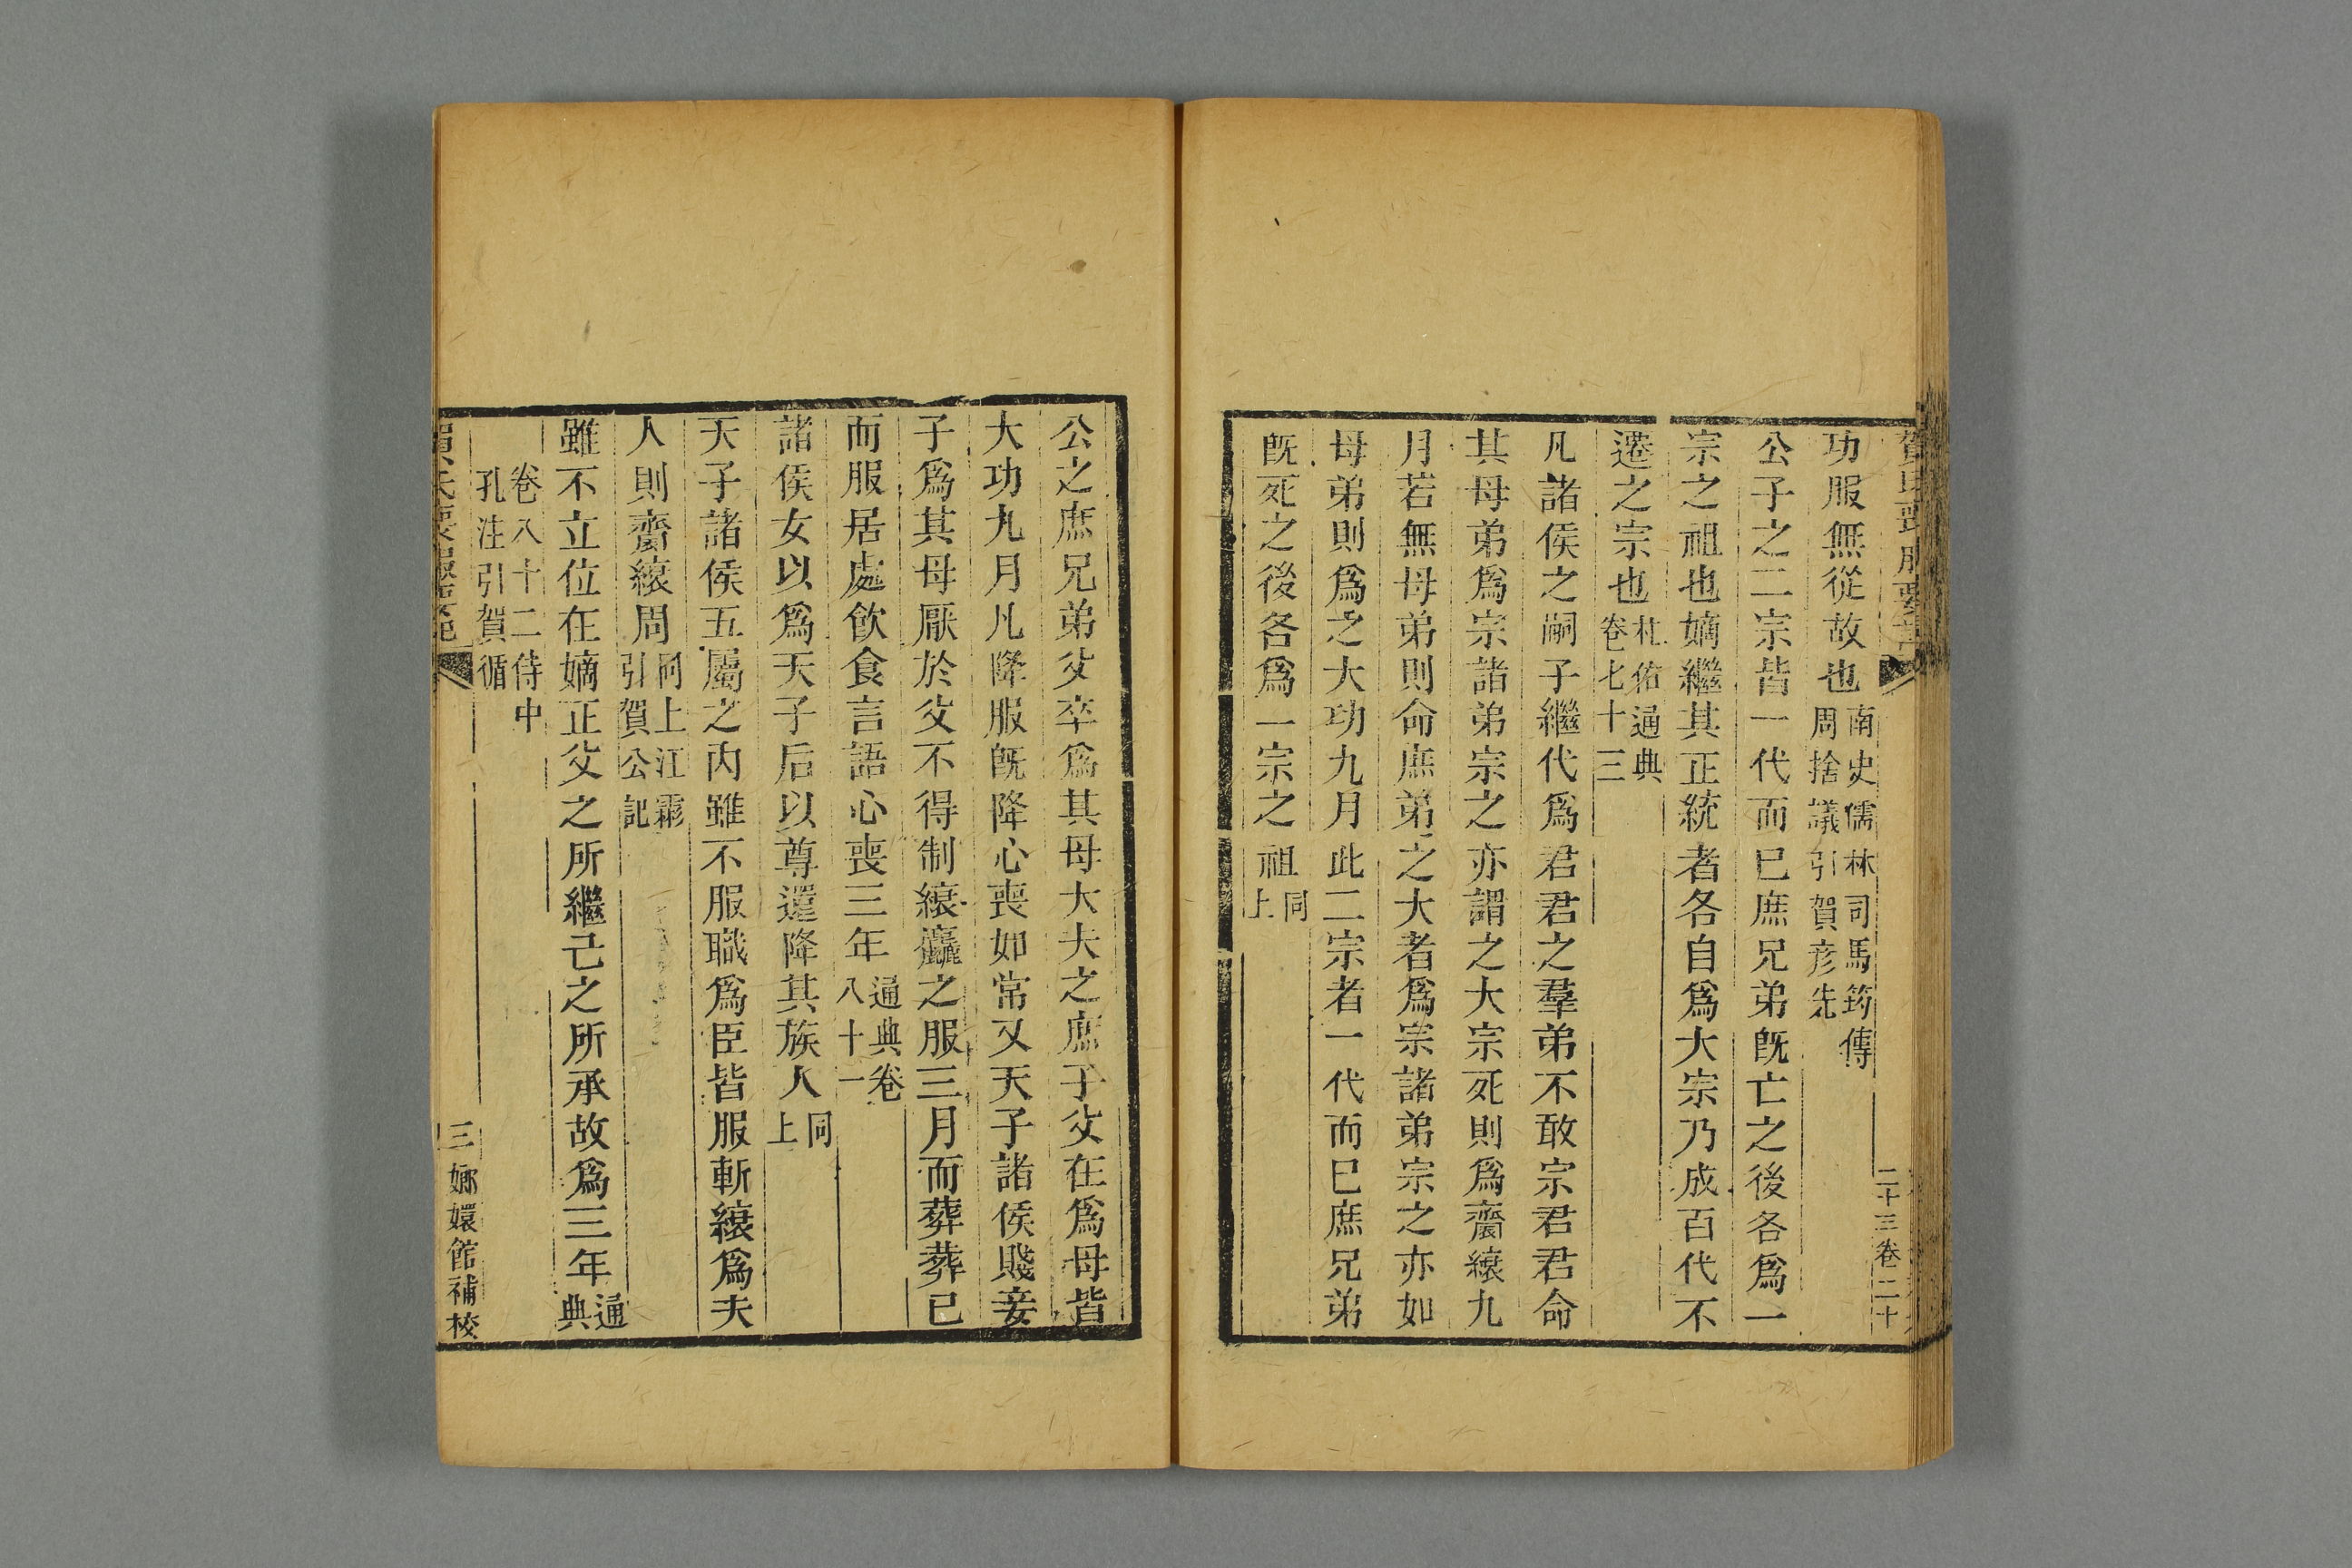 賀氏喪服要
二十三卷二十
功服無從故也南史儒林司馬筠傳周捨議引賀彥先
公子之二宗皆一代而已庶兄弟旣亡之後各爲一
宗之祖也嫡繼其正統者各自爲大宗乃成百代不
遷之宗也杜佑通典卷七十三
凡諸侯之嗣子繼代爲君君之羣弟不敢宗君君命
其母弟爲宗諸弟宗之亦謂之大宗死則爲齊縗九
月若無母弟則命庶弟之大者爲宗諸弟宗之亦如
母弟則爲之大功九月此二宗者一代而已庶兄弟
旣死之後各爲一宗之祖同上
公之庶兄弟父卒爲其母大夫之庶子父在爲母皆
大功九月凡降服旣降心喪如常又天子諸侯賤妾
子爲其母厭於父不得制縗麤之服三月而葬葬已
而服居處飮食言語心喪三年通典卷八十一
諸侯女以爲天子后以尊還降其族人同上
天子諸侯五屬之內雖不服職爲臣皆服斬縗爲夫
人則齊縗周同上江霦引賀公記
雖不立位在嫡正父之所繼己之所承故爲三年通典
卷八十二侍中孔注引賀循
三 嫏嬛館補校